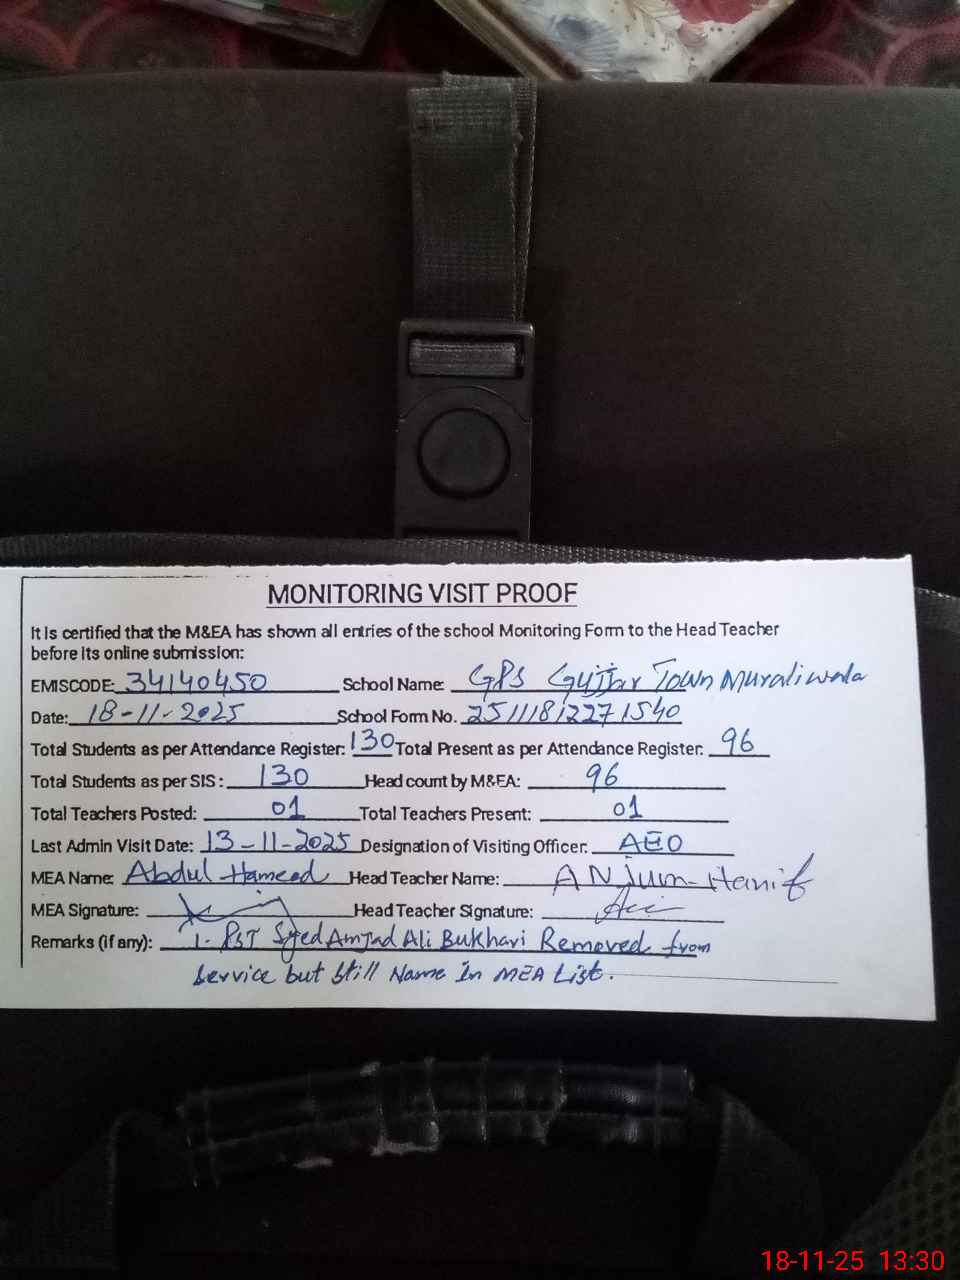 MONITORING VISIT PROOF
It is certified that the M&EA has shown all entries of the school Monitoring Form to the Head Teacher
before its online submission:
EMISCODE: 34140450 School Name: GPS Gujjar Town Muraliwala
Date: 18-11-2025 School Form No. 2511181227 1540
Total Students as per Attendance Register: 130 Total Present as per Attendance Register: 96
Total Students as per SIS: 130 Head count by M&EA: 96
Total Teachers Posted: 01 Total Teachers Present: 01
Last Admin Visit Date: 13-11-2025 Designation of Visiting Officer: AEO
MEA Name: Abdul Hameed Head Teacher Name: ANjum-Hanif
MEA Signature: Head Teacher Signature:
Remarks (if any): 1- PST Syed Amjad Ali Bukhari Removed from
service but still Name In MEA List.
18-11-25 13:30